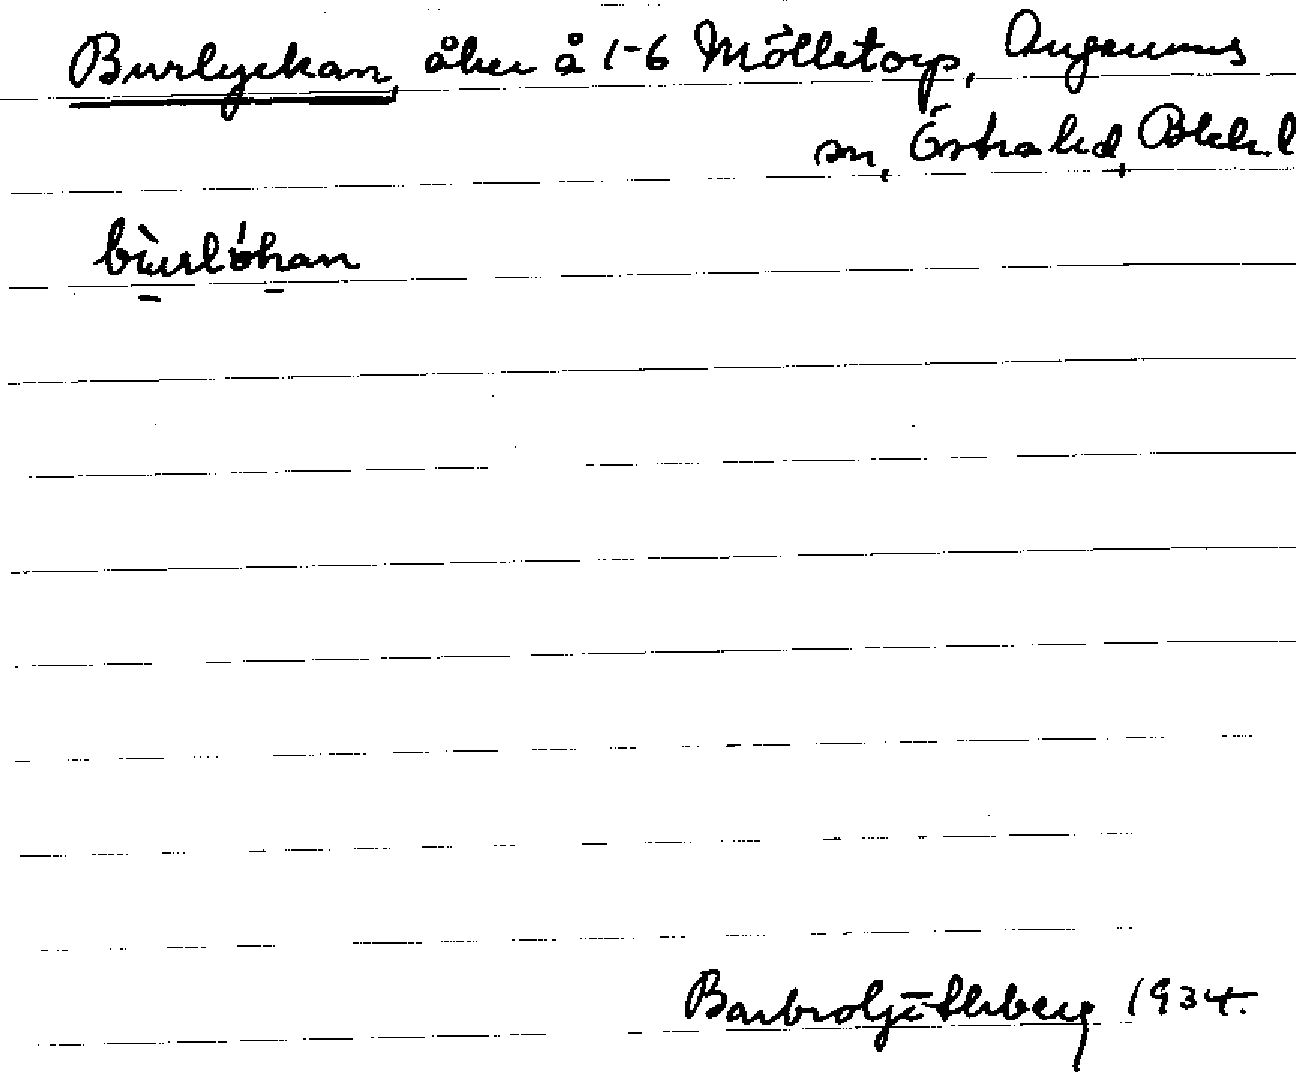 Burlyckan, åker å 1-6 Mölletorp, Augerums
sn, Östra hd, Blek. l
bùrlýkan
Barbro Ljungberg 1934.